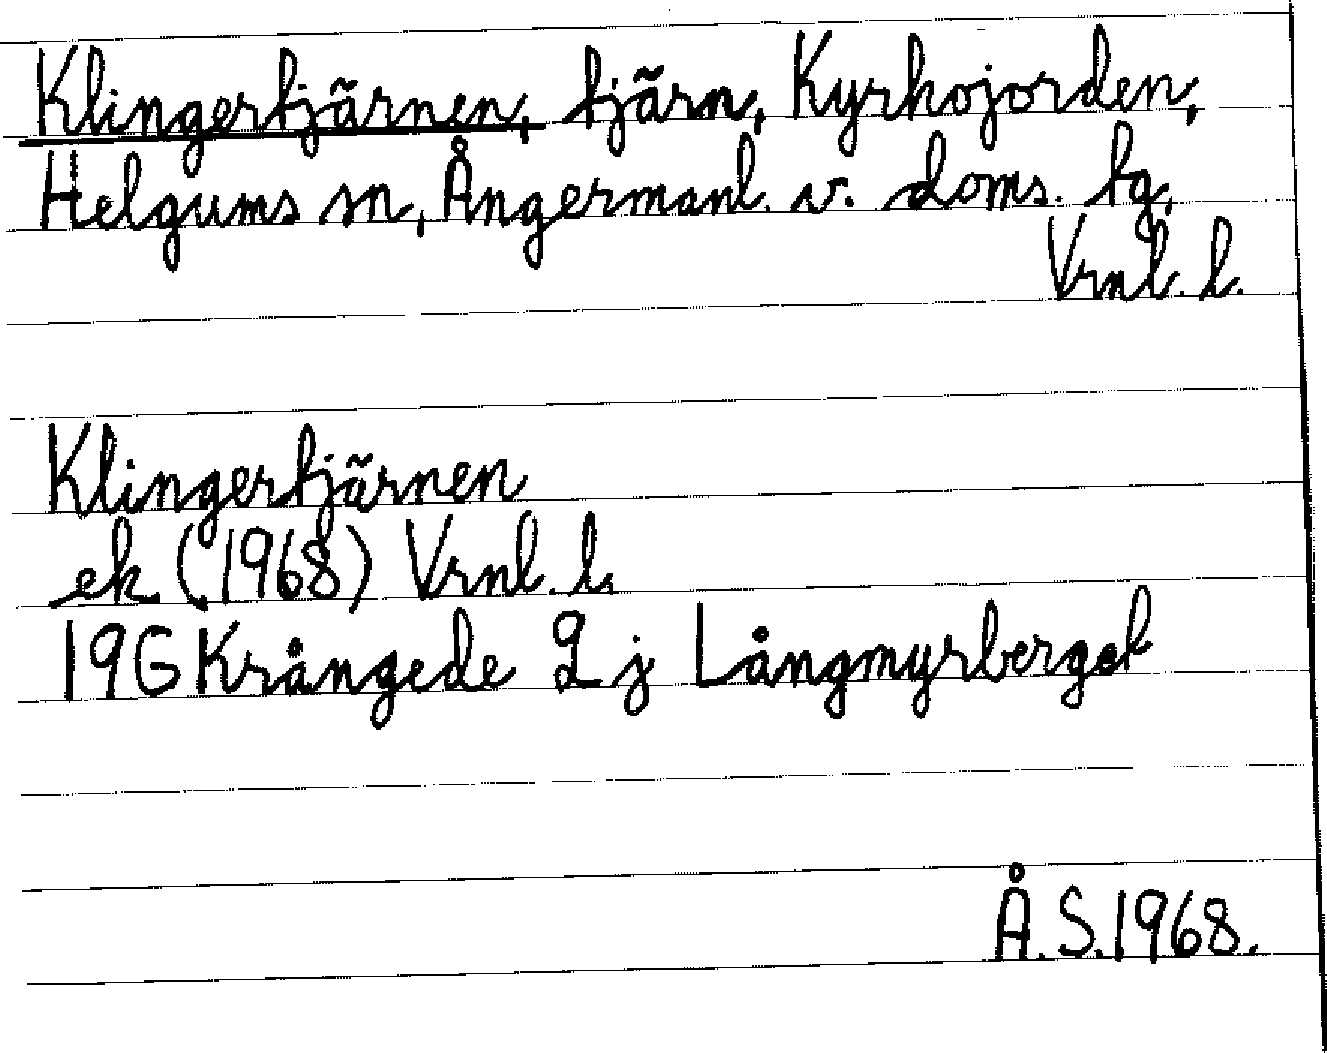 Klingertjärnen, tjärn, Kyrkojorden,
Helgums sn, Ångermanl. v. doms. tg.
Vrnl. l.
Klingertjärnen
ek (1968) Vrnl. l.
19G Krångede 2 j Långmyrberget
Å. S. 1968.